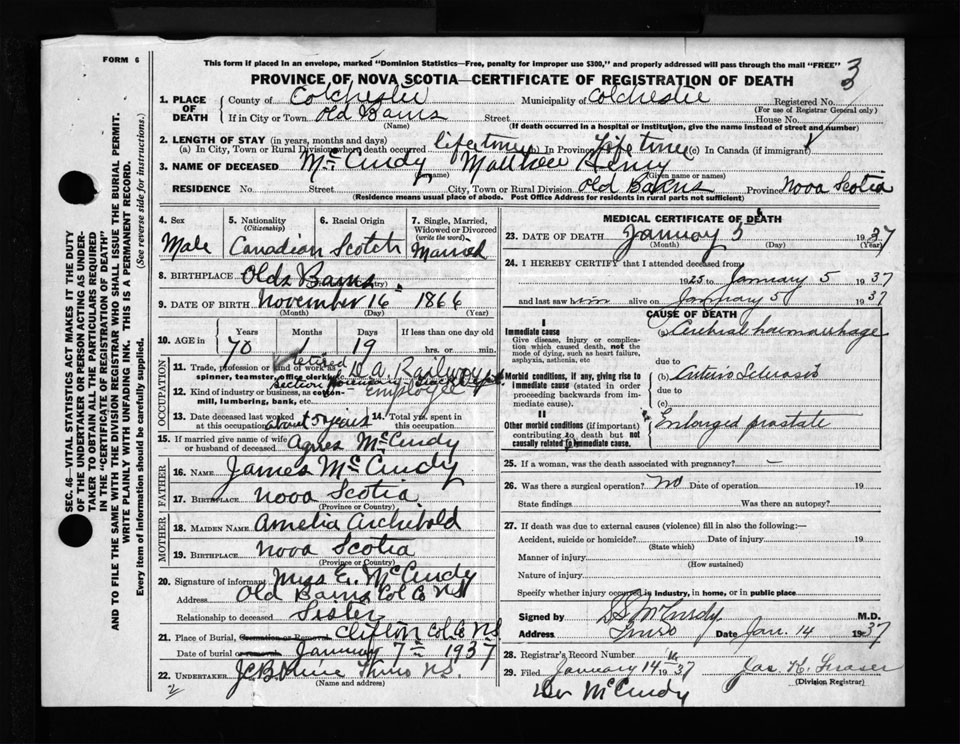 FORM 6
This form if placed in an envelope, marked "Dominion Statistics—Free, penalty for improper use $300," and properly addressed will pass through the mail "FREE"
3
3
PROVINCE OF NOVA SCOTIA—CERTIFICATE OF REGISTRATION OF DEATH
1. PLACE OF DEATH
County of Colchester Municipality of Colchester Registered No.
(For use of Registrar General only)
If in City or Town Old Barns Street House No.
(Name) (If death occurred in a hospital or institution, give the name instead of street and number)
2. LENGTH OF STAY (in years, months and days)
(a) In City, Town or Rural Division where death occurred lifetime (b) In Province Life time (c) In Canada (if immigrant)
3. NAME OF DECEASED McCurdy Matthew Henry
(Surname) (Given name or names)
RESIDENCE No. Street City, Town or Rural Division Old Barns Province Nova Scotia
(Residence means usual place of abode. Post Office Address for residents in rural parts not sufficient)
4. Sex Male
5. Nationality (Citizenship) Canadian
6. Racial Origin Scotch
7. Single, Married, Widowed or Divorced (write the word) Married
8. BIRTHPLACE Olds Barns
9. DATE OF BIRTH November 16 1866
(Month) (Day) (Year)
10. AGE in Years 70 Months 1 Days 19 If less than one day old hrs. or min.
OCCUPATION
11. Trade, profession or kind of work as spinner, teamster, office clerk, etc. retired Railway
section
12. Kind of industry or business, as cotton-mill, lumbering, bank, etc. Employee
13. Date deceased last worked at this occupation about 5 years 14. Total yrs. spent in this occupation
15. If married give name of wife or husband of deceased Agnes McCurdy
FATHER
16. NAME James McCurdy
17. BIRTHPLACE Nova Scotia
(Province or Country)
MOTHER
18. MAIDEN NAME Amelia Archibold
19. BIRTHPLACE Nova Scotia
(Province or Country)
20. Signature of informant Miss E. McCurdy
Address Old Barns Col Co NS
Relationship to deceased Sister
21. Place of Burial, Cremation or Removal Clifton Col. Co N.S.
Date of burial or removal January 7th 1937
22. UNDERTAKER Truro N.S.
(Name and address)
MEDICAL CERTIFICATE OF DEATH
23. DATE OF DEATH January 5 1937
(Month) (Day) (Year)
24. I HEREBY CERTIFY that I attended deceased from
1925 to January 5 1937
and last saw him alive on January 5 1937
CAUSE OF DEATH
I
Immediate cause
Give disease, injury or complication which caused death, not the mode of dying, such as heart failure, asphyxia, asthenia, etc
(a) Cerebral haemorrhage
due to
Morbid conditions, if any, giving rise to immediate cause (stated in order proceeding backwards from immediate cause).
(b) Arterio Sclerosis
due to
(c)
II
Other morbid conditions (if important) contributing to death but not causally related to immediate cause.
Enlonged prostate
25. If a woman, was the death associated with pregnancy? —
26. Was there a surgical operation? No Date of operation 19
State findings Was there an autopsy?
27. If death was due to external causes (violence) fill in also the following:—
Accident, suicide or homicide? Date of injury 19
(State which)
Manner of injury
(How sustained)
Nature of injury
Specify whether injury occurred in industry, in home, or in public place
Signed by D.S. McCurdy M.D.
Address Truro Date Jan. 14 1937
28. Registrar's Record Number
29. Filed January 14 1937 Jas. H. Fraser
(Division Registrar)
Dr McCurdy
SEC. 46—VITAL STATISTICS ACT MAKES IT THE DUTY OF THE UNDERTAKER OR PERSON ACTING AS UNDERTAKER TO OBTAIN ALL THE PARTICULARS REQUIRED IN THE "CERTIFICATE OF REGISTRATION OF DEATH" AND TO FILE THE SAME WITH THE DIVISION REGISTRAR WHO SHALL ISSUE THE BURIAL PERMIT.
WRITE PLAINLY WITH UNFADING INK. THIS IS A PERMANENT RECORD.
Every item of information should be carefully supplied. (See reverse side for instructions.)